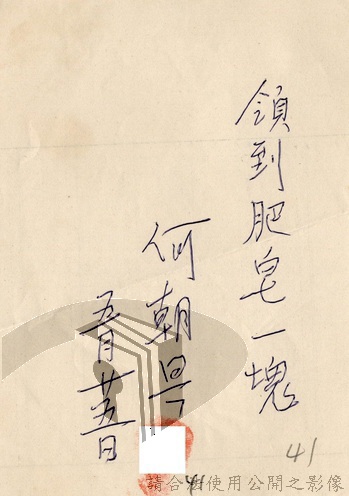 領到肥皂一塊
何朝
五月廿五日
41
41
請合理使用公開之影像